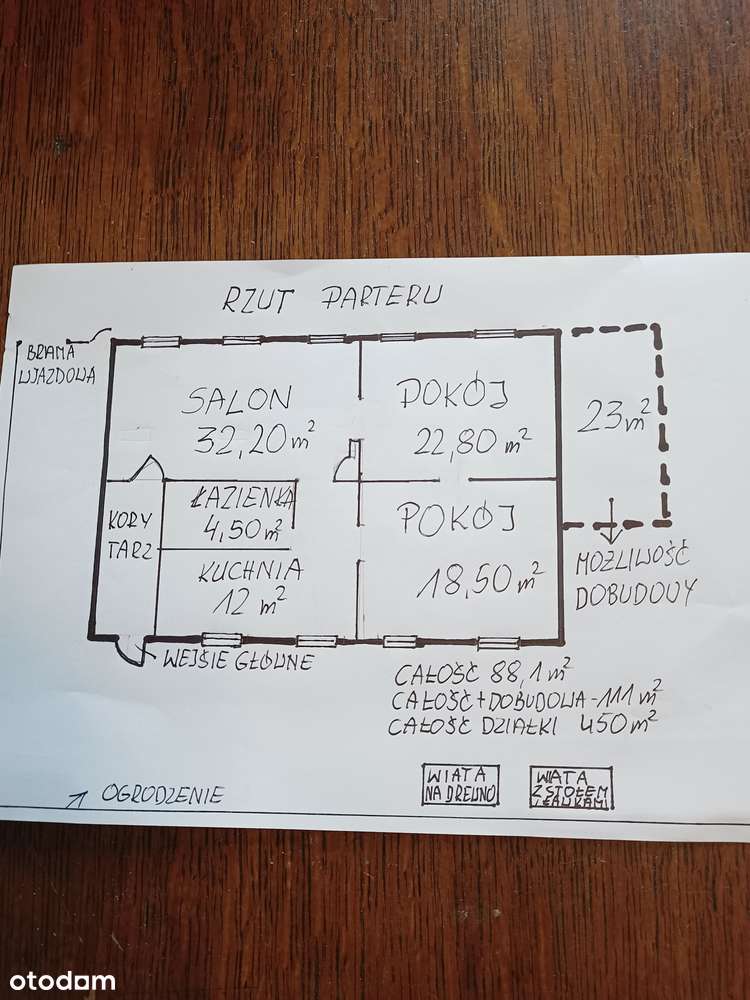 RZUT PARTERU
BRAMA
WJAZDOWA
SALON
32,20 m²
POKÓJ
22,80 m²
23 m²
ŁAZIENKA
4,50 m²
KORY
TARZ
KUCHNIA
12 m²
POKÓJ
18,50 m²
MOŻLIWOŚĆ
DOBUDOWY
WEJŚIE GŁÓWNE
CAŁOŚĆ 88,1 m²
CAŁOŚĆ + DOBUDOWA - 111 m²
CAŁOŚĆ DZIAŁKI 450 m²
WIATA
NA DREWNO
WIATA
Z STOŁEM
I ŁAWKAMI
OGRODZENIE
otodom